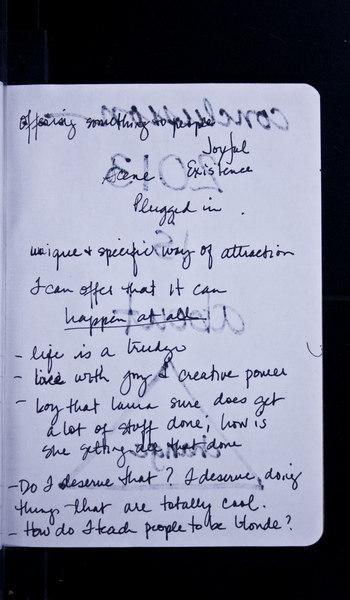 Offering something to people
Joyful
Scene Existence
Plugged in.
unique + specific way of attraction
I can offer that it can
happen at all
- life is a trudge
- live with joy & creative power
- boy that Laura sure does get
a lot of stuff done, how is
she getting all that done
- Do I deserve that? I deserve, doing
things that are totally cool.
- How do I teach people to be blonde?
conclusion
2013
is
about
change